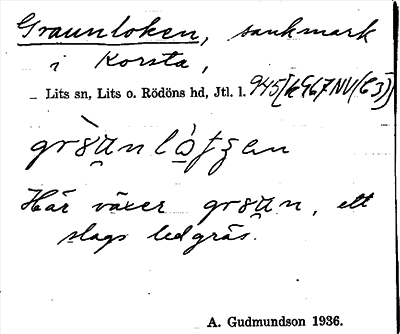 Graunloken, sankmark
i Korsta,
Lits sn, Lits o. Rödöns hd, Jtl. l. 945
Här växer grȣan, ett
slags ledgräs.
A. Gudmundson 1936.